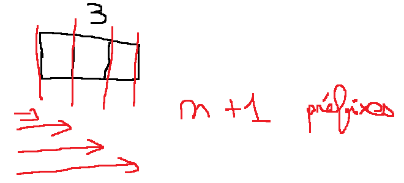 3
n + 1 préfixes